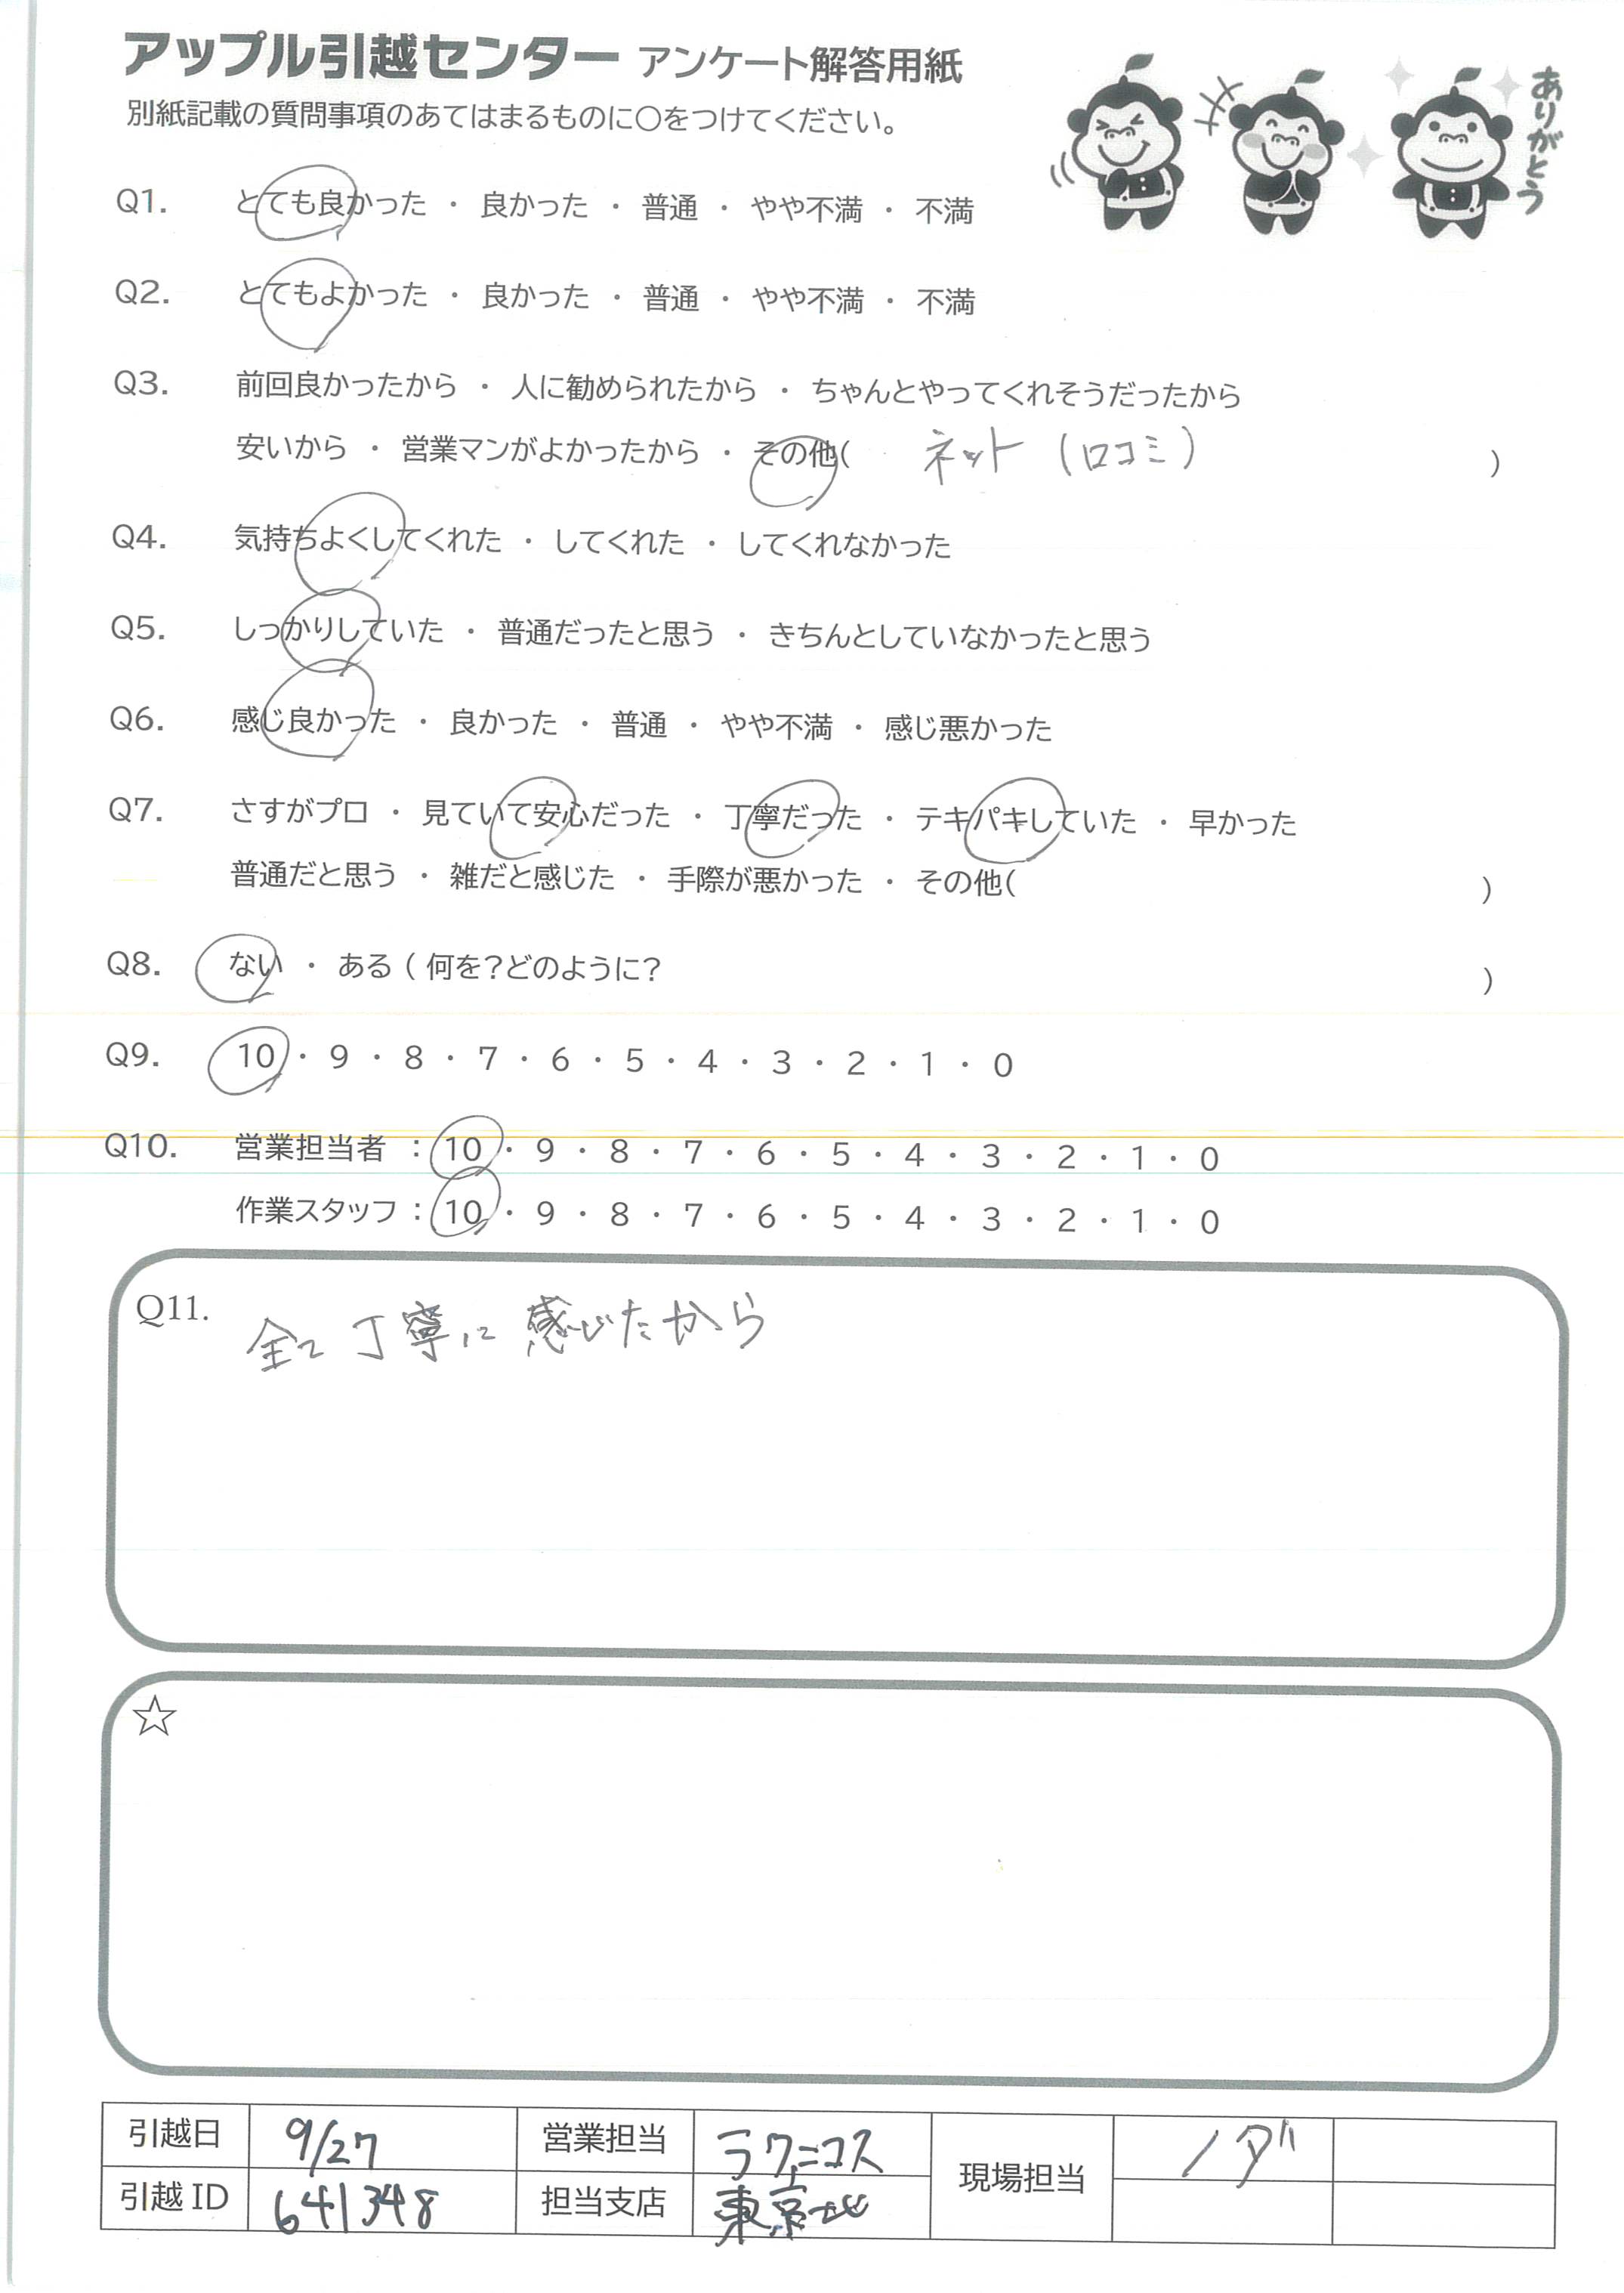 アップル引越センター アンケート解答用紙
別紙記載の質問事項のあてはまるものに○をつけてください。
ありがとう
Q1. とても良かった ・ 良かった ・ 普通 ・ やや不満 ・ 不満
Q2. とてもよかった ・ 良かった ・ 普通 ・ やや不満 ・ 不満
Q3. 前回良かったから ・ 人に勧められたから ・ ちゃんとやってくれそうだったから
安いから ・ 営業マンがよかったから ・ その他( ネット (口コミ) )
Q4. 気持ちよくしてくれた ・ してくれた ・ してくれなかった
Q5. しっかりしていた ・ 普通だったと思う ・ きちんとしていなかったと思う
Q6. 感じ良かった ・ 良かった ・ 普通 ・ やや不満 ・ 感じ悪かった
Q7. さすがプロ ・ 見ていて安心だった ・ 丁寧だった ・ テキパキしていた ・ 早かった
普通だと思う ・ 雑だと感じた ・ 手際が悪かった ・ その他( )
Q8. ない ・ ある ( 何を?どのように? )
Q9. 10 ・ 9 ・ 8 ・ 7 ・ 6 ・ 5 ・ 4 ・ 3 ・ 2 ・ 1 ・ 0
Q10. 営業担当者 : 10 ・ 9 ・ 8 ・ 7 ・ 6 ・ 5 ・ 4 ・ 3 ・ 2 ・ 1 ・ 0
作業スタッフ : 10 ・ 9 ・ 8 ・ 7 ・ 6 ・ 5 ・ 4 ・ 3 ・ 2 ・ 1 ・ 0
Q11. 全て丁寧に感じたから
☆
引越日 9/27 営業担当 現場担当 ノダ
引越 ID 641348 担当支店 東京北